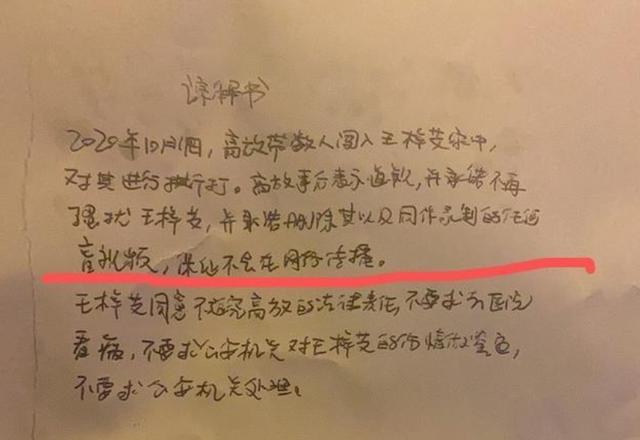 谅解书
2020年10月1日，高放带数人闯入王梓芠家中，
对其进行推打。高放事后表示道歉，并承诺不再
骚扰王梓芠，并承诺删除其以及同伴录制的任何
音视频，保证不会在网络传播。
王梓芠同意不追究高放的法律责任，不要求去医院
看病，不要求公安机关对王梓芠的伤情做鉴定，
不要求公安机关处理。